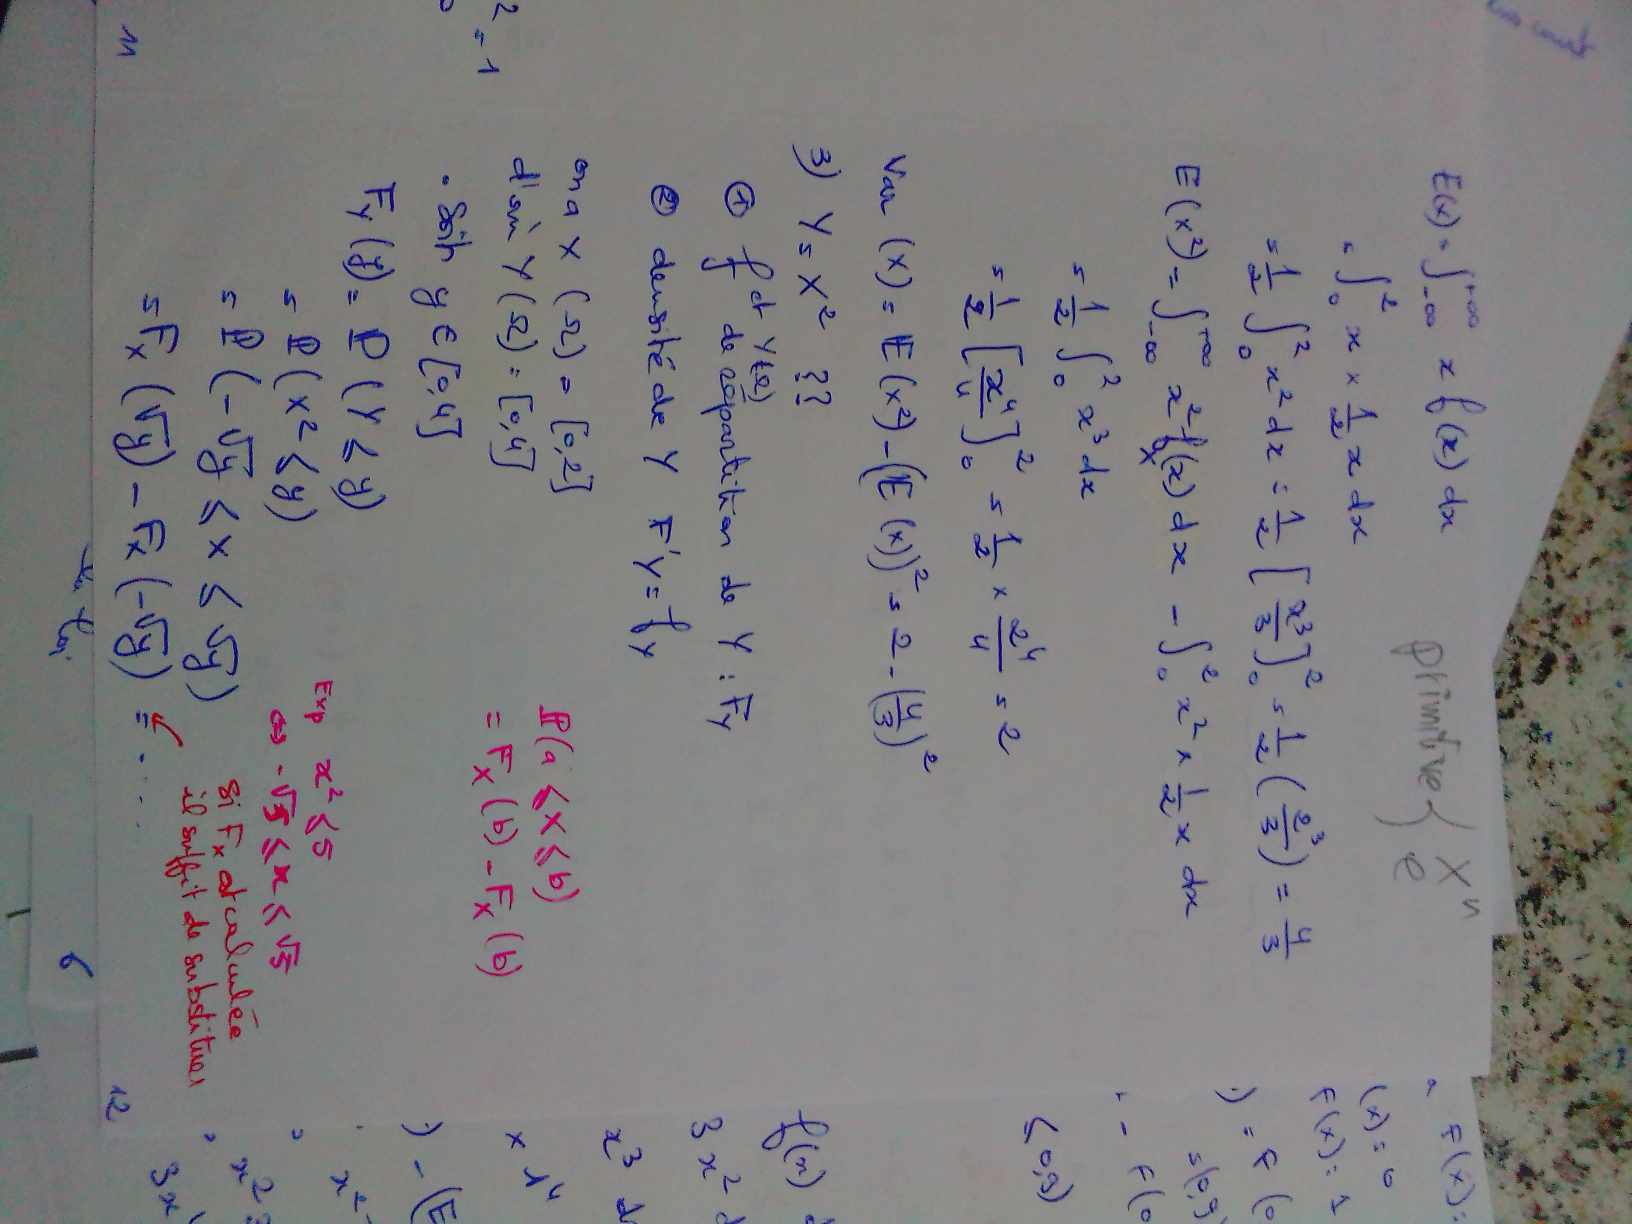 E(x) = ∫_{-∞}^{+∞} x f(x) dx
= ∫_0^2 x × 1/2 x dx
primitive { x^n
e
= 1/2 ∫_0^2 x² dx = 1/2 [x³/3]_0^2 = 1/2 (2³/3) = 4/3
E(x²) = ∫_{-∞}^{+∞} x² f_x(x) dx - ∫_0^2 x² × 1/2 x dx
= 1/2 ∫_0^2 x³ dx
= 1/2 [x⁴/4]_0^2 = 1/2 × 2⁴/4 = 2
Var (x) = E(x²) - (E(x))² = 2 - (4/3)²
3) Y = X² ??
① f dt Y(Ω) de répartition de Y : F_Y
② densité de Y F'_Y = f_Y
on a X(Ω) = [0,2]
d'où Y(Ω) = [0,4]
P(a ≤ X ≤ b)
= F_X(b) - F_X(b)
• Soit y ∈ [0,4]
F_Y(y) = P(Y ≤ y)
= P(X² ≤ y)
Exp x² ≤ 5
⇔ -√5 ≤ x ≤ √5
= P(-√y ≤ X ≤ √y)
= F_X(√y) - F_X(-√y) = ....
Si F_X dt calculée
il suffit de substituer
11
12
6
2 = -1
F(x):
(x) = 0
F(x): 1
) = F(0
= (0,9
- F(0
≤ 0,9)
f(x)
3x²
x³ d
× 1⁴
) - (E
x²
x²
3x